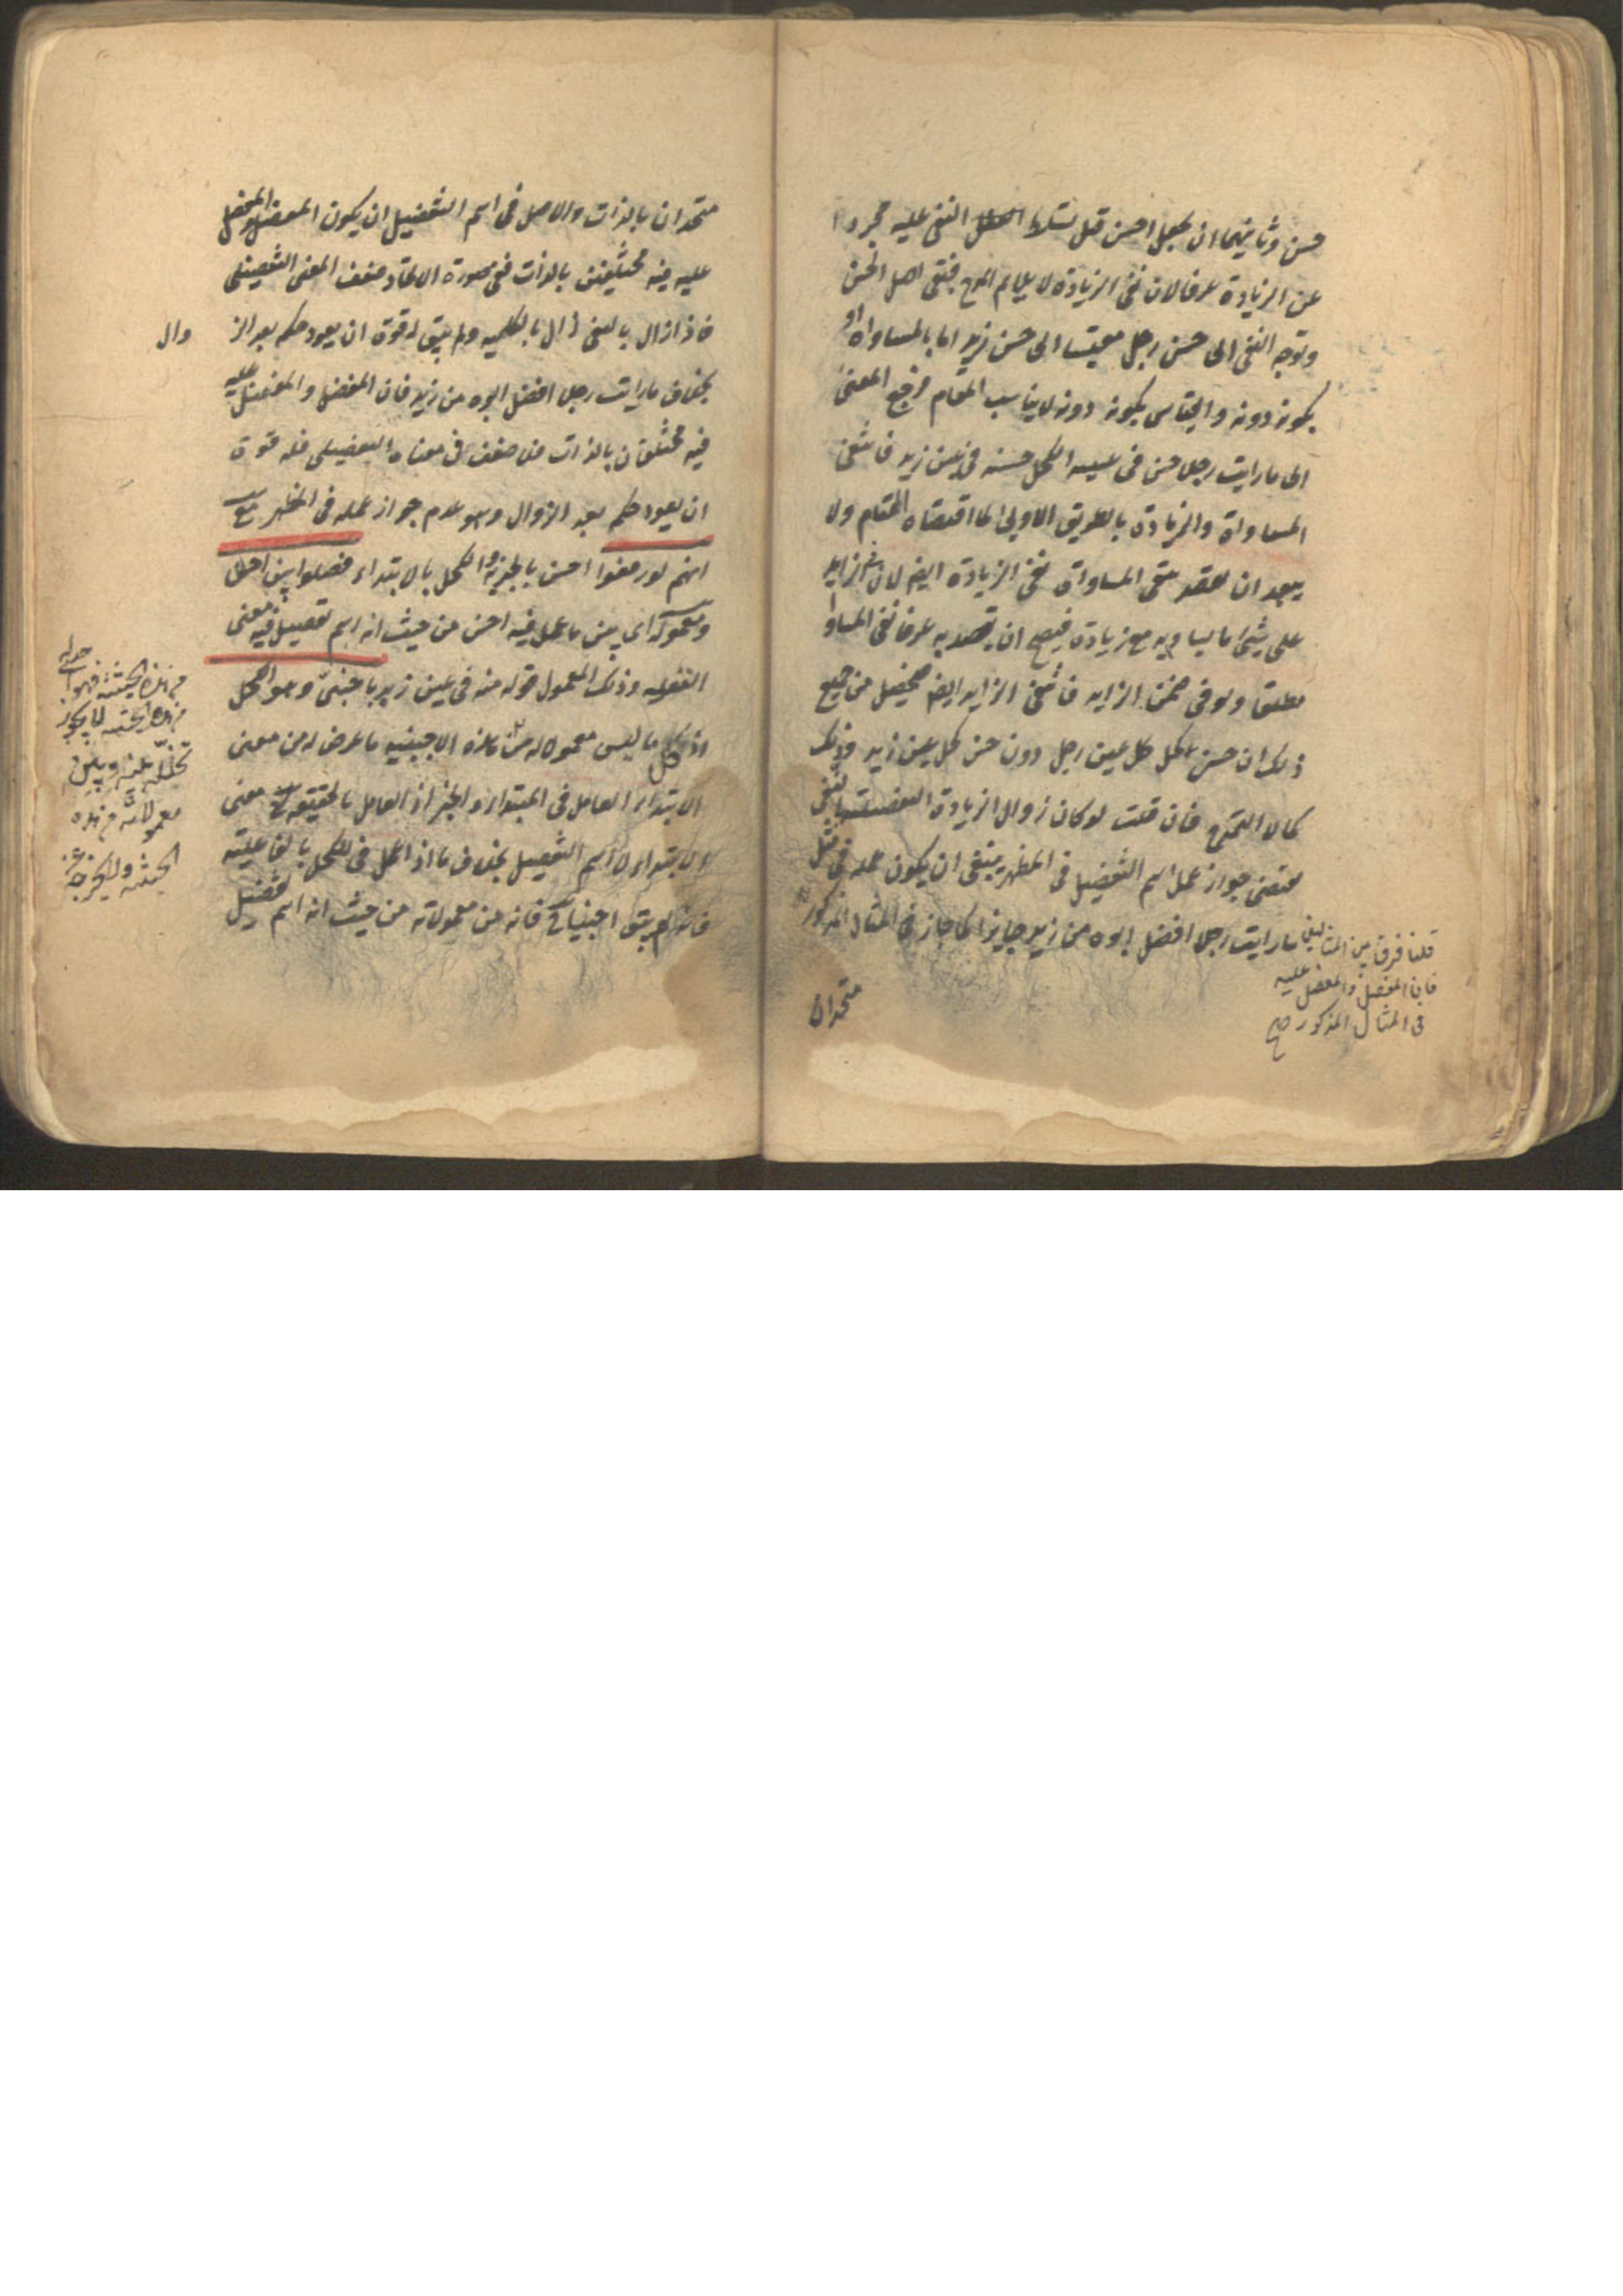 حسن وثانيهما ان يجعل احسن قبل تسلط النفى عليه مجردا
عن الزيادة عرفا لان نفى الزيادة لا يلايم المدح فبقى اصل الحسن
وتوجه النفى الى حسن رجل مقيسا الى حسن زيد اما بالمساواة او
بكونه دونه والقياس بكونه دونه لا يناسب المقام فرجع المعنى
الى ما رايت رجلا حسن فى عينه الكحل حسنه فى عين زيد فانتفى
المساواة والزيادة بالطريق الاولى لما اقتضاه المقام ولا
يبعد ان يقصد بنفى المساواة نفى الزيادة ايضا لان فى الزايد
على شئ ما يساويه مع زيادة فيصح ان يقصد به عرفا نفى المساوا
مطلقا ولو فى ضمن الزايد فانتفى الزايد ايضا فحصل من جميع
ذلك ان حسن كحل كل عين رجل دون حسن كحل عين زيد وذلك
كمال التمدح فان قلت لو كان زوال الزيادة التفضيلية بالنفى
مقتضى جواز عمل اسم التفضيل فى المظهر ينبغى ان يكون عمله فى مثل
ما رايت رجلا افضل ابوه من زيد جايزا كما جاز فى المثال المذكور
قلنا فرق بين المثالين
فان المفضل والمفضل عليه
فى المثال المذكور صح
متحدان
متحدان بالذات والاصل فى اسم التفضيل ان يكون المفضل والمفضل
عليه فيه مختلفين بالذات ففى صورة الاتحاد ضعف المعنى التفضيلى
فاذا زال بالنفى زال بالكلية ولم يبق له قوة ان يعود حكمه بعد الز
وال
بخلاف ما رايت رجلا افضل ابوه من زيد فان المفضل والمفضل عليه
فيه مختلفان بالذات فلا ضعف فى معناه التفضيلى فله قوة
ان يعود حكمه بعد الزوال وهو عدم جواز عمله فى المظهر مع
انهم لو رفعوا احسن بالخبرية والكحل بالابتداء فصلوا بين احسن
ومعموله اى بين ما عمل فيه احسن من حيث انه اسم تفضيل فيه معنى
التفضيل وذلك المعمول قوله منه فى عين زيد باجنبى وهو الكحل
اذ كل ما ليس معمولا له من هذه الاجنبية ما عرض له من معنى
الابتداء العامل فى المبتداء والخبر اذ العامل بالحقيقة معنى
الابتداء لا اسم التفضيل بخلاف ما اذا عمل فى الكحل بالفاعلية
فانه لم يبق اجنبيا فانه من معمولاته من حيث انه اسم تفضيل
من هذه الحيثية فهو
من هذه الحيثية لا يجوز
تخلله بينه وبين
معمولاته من هذه
الحيثية